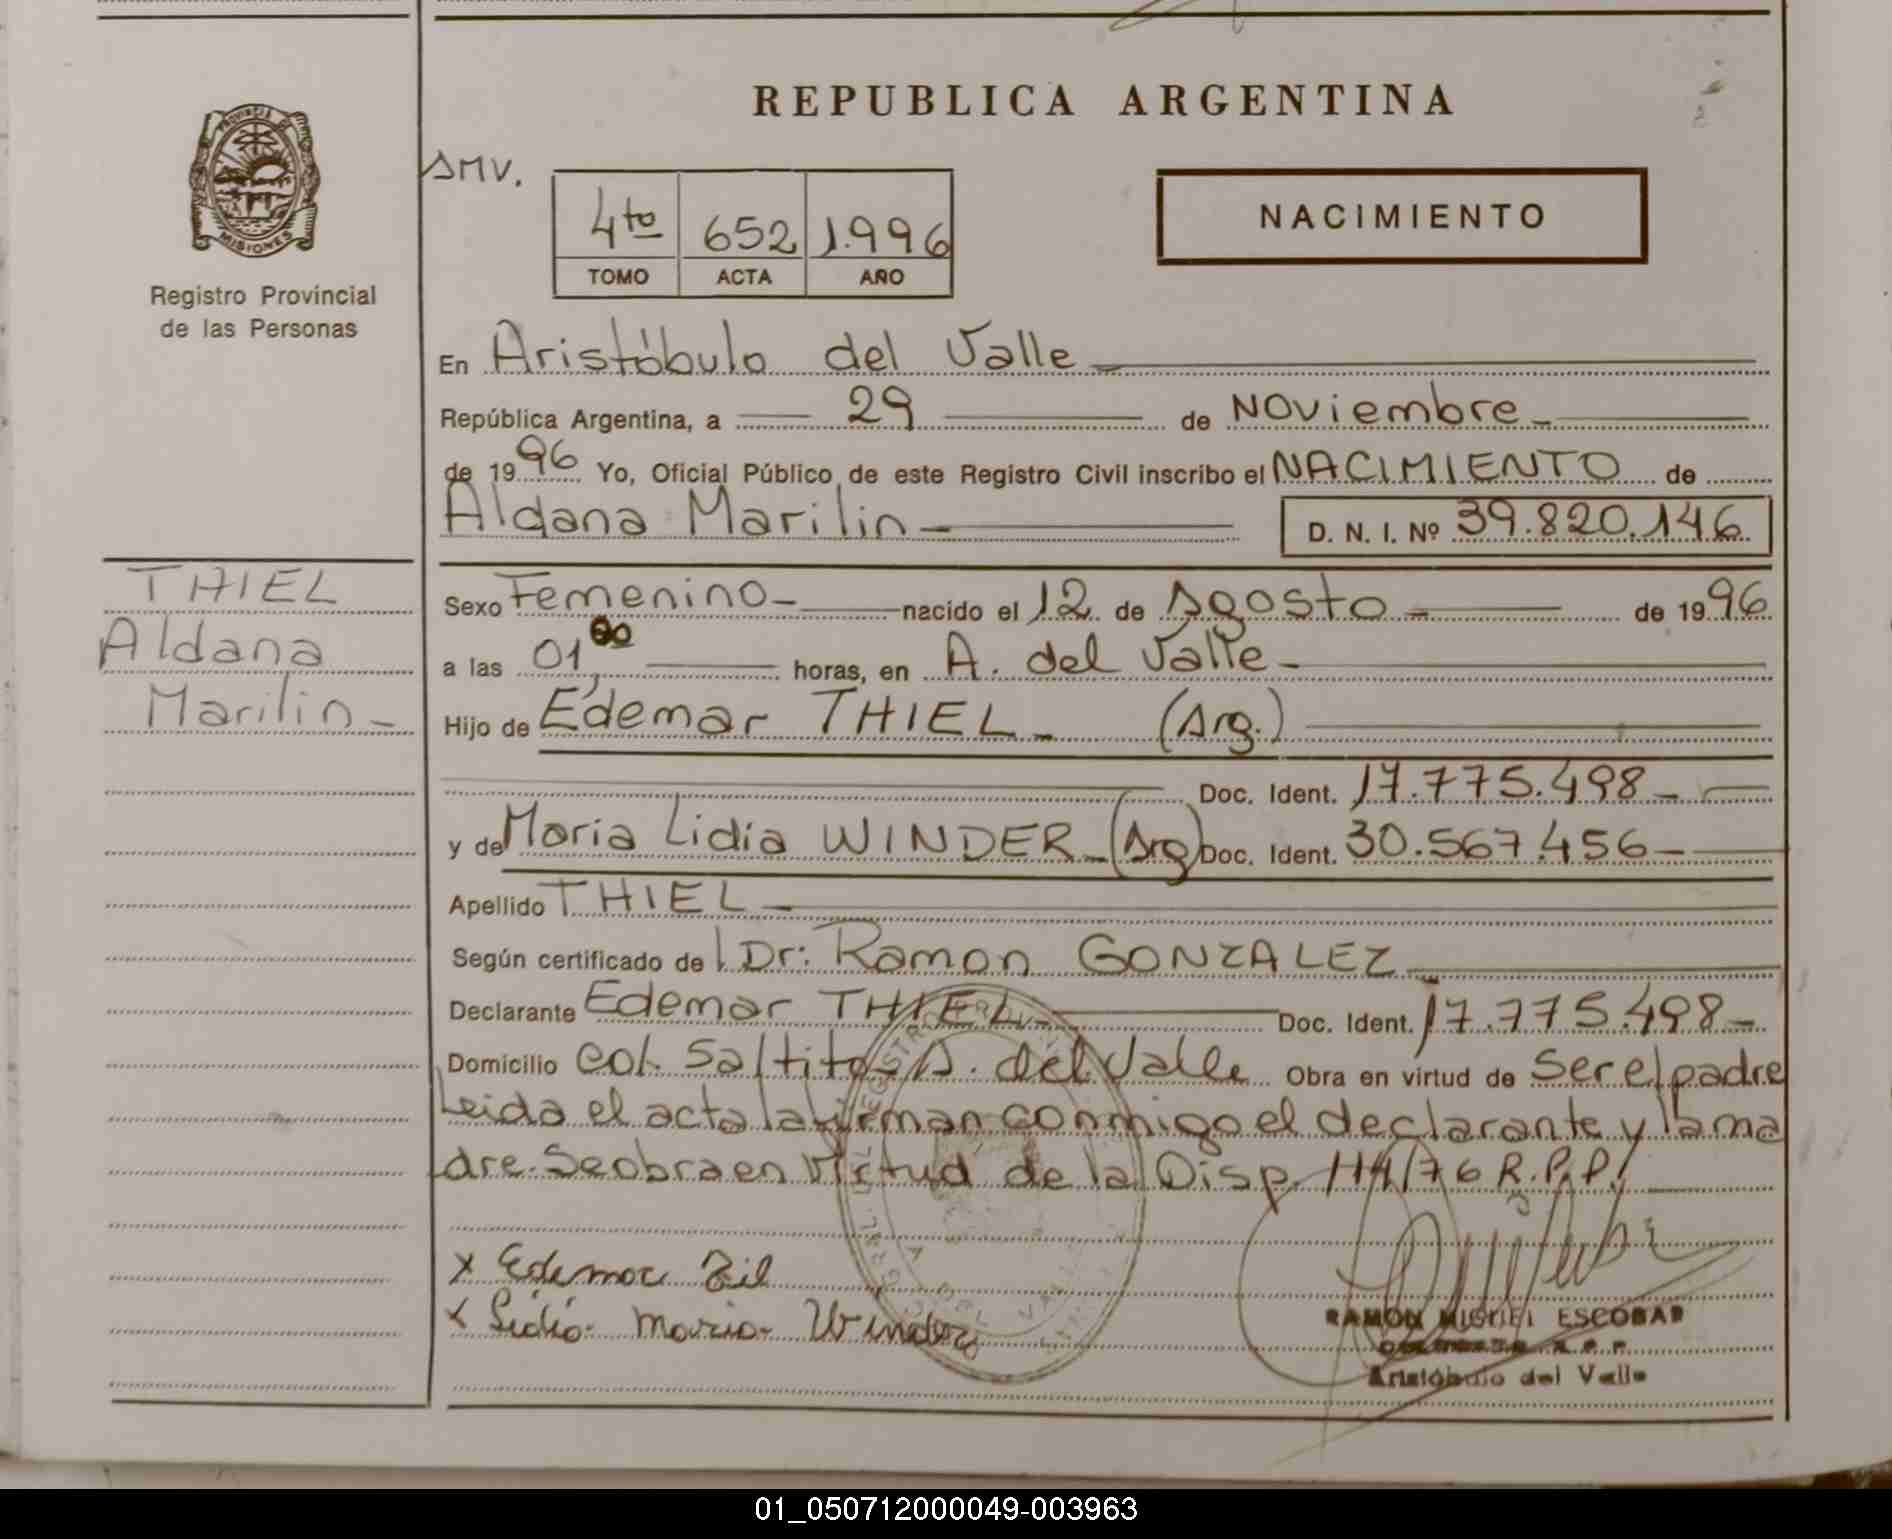 REPUBLICA ARGENTINA
PROVINCIA DE
MISIONES
Registro Provincial
de las Personas
SMV.
4to 652 1.996
TOMO ACTA AÑO
NACIMIENTO
En Aristóbulo del Valle
República Argentina, a 29 de Noviembre
de 1996 Yo, Oficial Público de este Registro Civil inscribo el NACIMIENTO de
Aldana Marilin D. N. I. Nº 39.820.146
THIEL
Aldana
Marilin
Sexo Femenino nacido el 12 de Agosto de 1996
a las 01,00 horas, en A. del Valle
Hijo de Edemar THIEL (Arg.)
Doc. Ident. 17.775.498
y de Maria Lidia WINDER (Arg) Doc. Ident. 30.567.456
Apellido THIEL
Según certificado de Dr: Ramon GONZALEZ
Declarante Edemar THIEL Doc. Ident. 17.775.498
Domicilio Col. Saltito A. del Valle Obra en virtud de Ser el padre
Leida el acta la firman conmigo el declarante y la ma
dre. Se obra en virtud de la Disp. 114/76 R.P.P.
x Edemar Zil
x Lidia Maria Winder
RAMON MIGUEL ESCOBAR
Aristóbulo del Valle
01_050712000049-003963